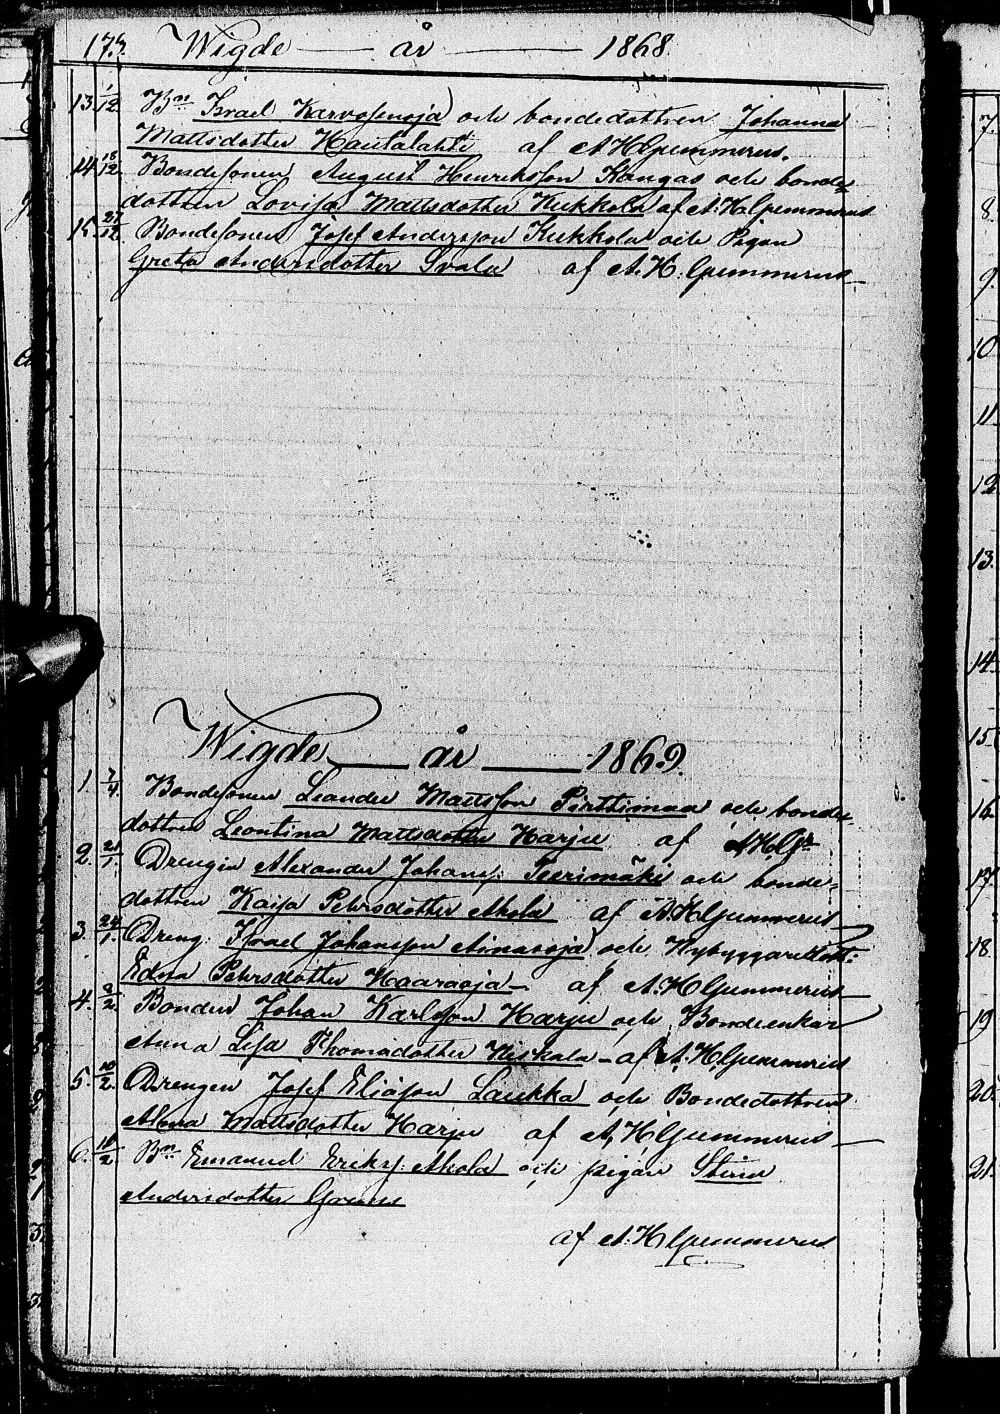 173. Wigde — år — 1868.
13. 1/12. Bn Israel Karvosenoja och bondedottren Johanna
Mattsdotter Hautalahti af A H Gummerus.
14. 18/12. Bondesonen August Henriksson Kangas och bonde-
dottren Lovisa Mattsdotter Kukkola af A. H. Gummerus
15. 27/12. Bondesonen Josef Andersson Kukkola och Pigan
Greta Andersdotter Svala af A. H. Gummerus
Wigde — år — 1869.
1. 7/4. Bondesonen Leander Mattsson Pirttimaa och bonde-
dottren Leontina Mattsdotter Harju af A H Grs
2. 21/1. Drengen Alexander Johans: Teerimäki och bonde-
dottren Kaisa Pehrsdotter Ahola af A. H Gummerus
3. 24/1. Dreng. Israel Johansson Ainasoja och Nybyggaredott:
Edna Pehrsdotter Haaraoja — af A. H Gummerus
4. 3/2. Bonden Johan Karlsson Harju och Bondeenkan
Anna Lisa Thomasdotter Niskala — af A. H. Gummerus
5. 10/2. Drengen Josef Eliasson Laukka och Bondedottren
Mattsdotter Harju af A. H Gummerus
6. 10/2. Bn Emanuel Eriks: Ahola och pigan Stina
Andersdotter
af A. H Gummerus
7.
8.
9.
10.
11.
12.
13.
14.
15.
16.
17.
18.
19.
20.
21.